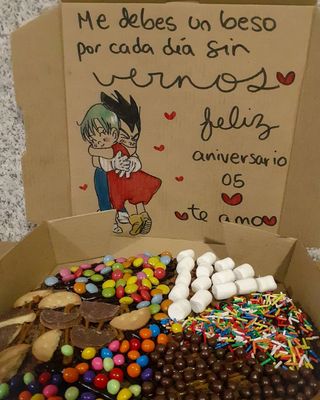 Me debes un beso
por cada día sin
vernos
feliz
aniversario
05
te amo